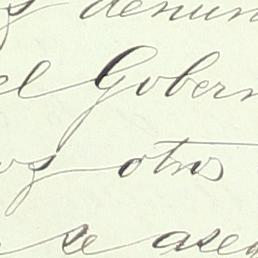 denun
el Gobern
os otros
se ase